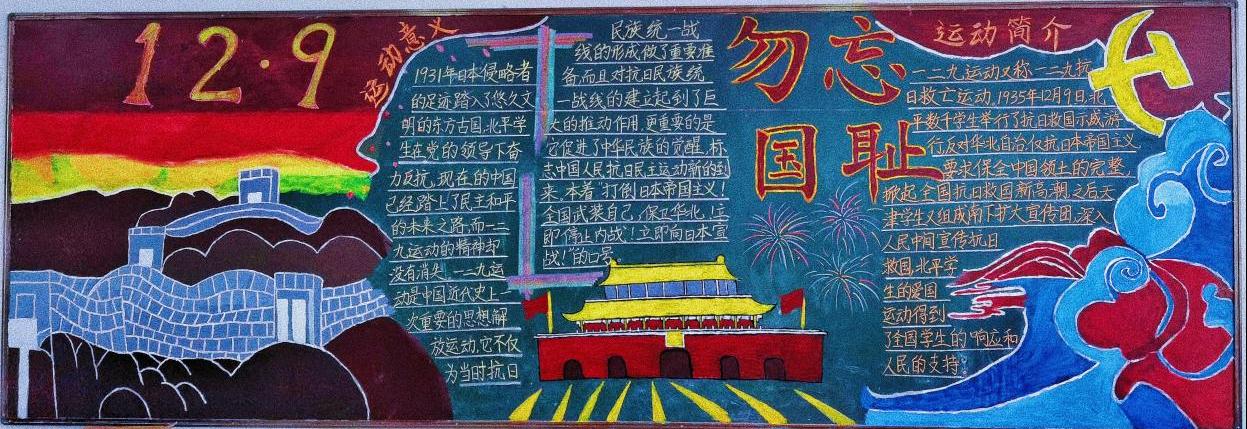 12·9
运动意义
1931年日本侵略者
的足迹踏入了悠久文
明的东方古国,北平学
生在党的领导下奋
力反抗,现在的中国
已经踏上了民主和平
的未来之路,而一二
九运动的精神却
没有消失,一二九运
动是中国近代史上一
次重要的思想解
放运动,它不仅
为当时抗日
民族统一战
线的形成做了重要准
备,而且对抗日民族统
一战线的建立起到了巨
大的推动作用,更重要的是
它促进了中华民族的觉醒,标
志中国人民抗日民主运动新的到
来,本着"打倒日本帝国主义!
全国武装自己,保卫华北,立
即停止内战!立即向日本宣
战!"的口号
勿忘
国耻
运动简介
一二九运动又称一二九抗
日救亡运动,1935年12月9日,北
平数千学生举行了抗日救国示威游
行反对华北自治仅抗日本帝国主义
要求保全中国领土的完整,
掀起全国抗日救国新高潮,之后天
津学生又组成南下扩大宣传团,深入
人民中间宣传抗日
救国,北平学
生的爱国
运动得到
了全国学生的响应和
人民的支持。